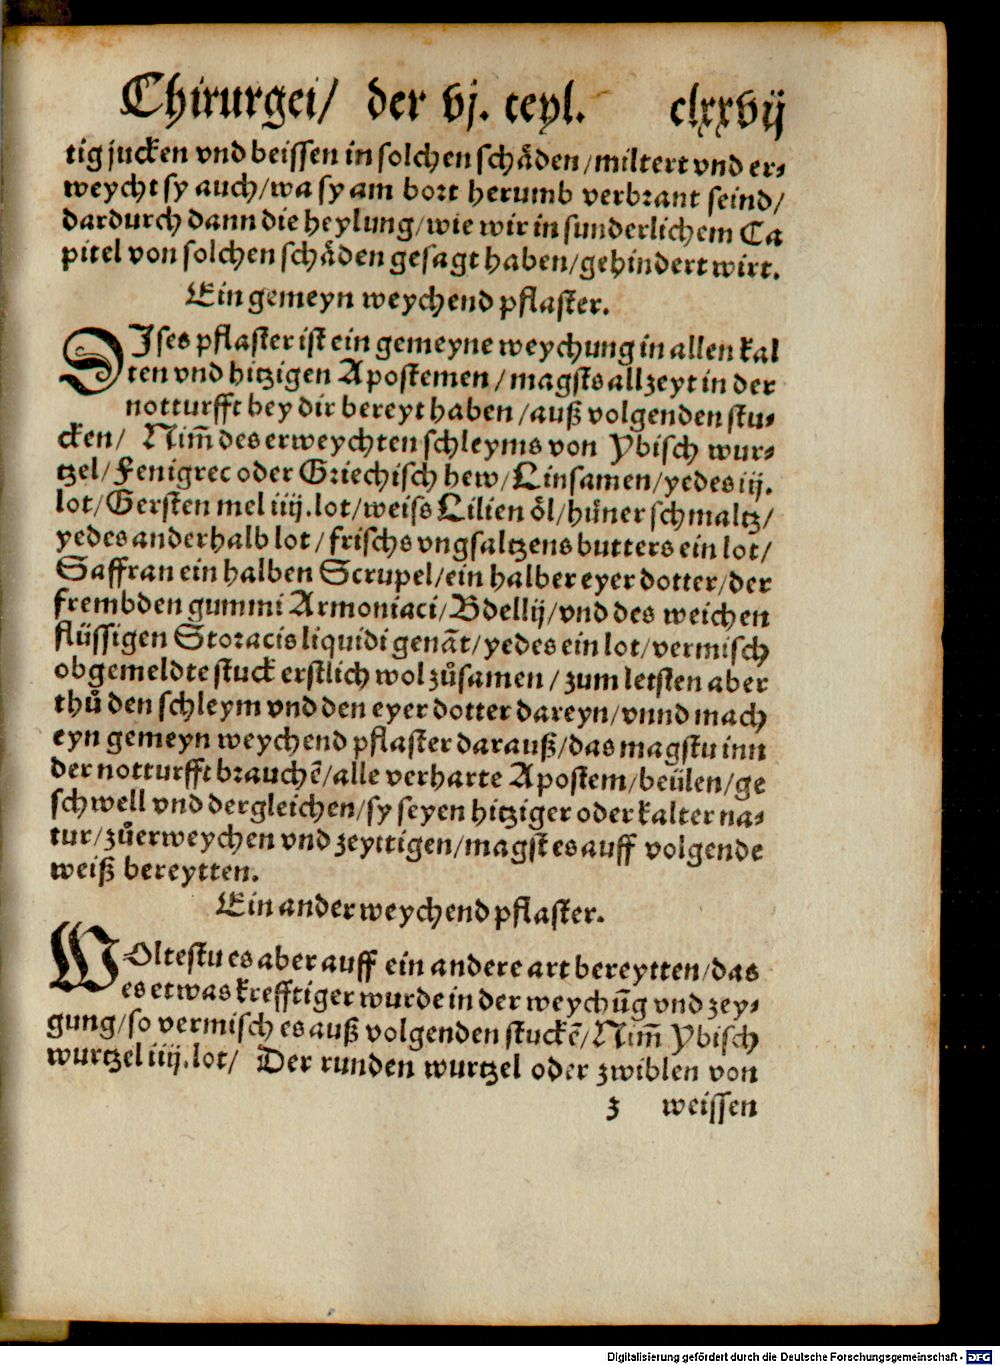 Chirurgei/ der vj. teyl. clxxvij
tig jucken vnd beissen in solchen schåden/miltert vnd er⸗
weycht sy auch/wa sy am bort herumb verbrant seind/
dardurch dann die heylung/wie wir in sunderlichem Ca
pitel von solchen schåden gesagt haben/gehindert wirt.
Ein gemeyn weychend pflaster.
DIses pflaster ist ein gemeyne weychung in allen kal
ten vnd hitzigen Apostemen/magsts allzeyt in der
notturfft bey dir bereyt haben/auß volgenden stu⸗
cken/ Nim̃ des erweychten schleyms von Ybisch wur⸗
tzel/Fenigrec oder Griechisch hew/Linsamen/yedes iij.
lot/Gersten mel iiij.lot/weiss Lilien ôl/hůner schmaltz/
yedes anderhalb lot/frischs vngsaltzens butters ein lot/
Saffran ein halben Scrupel/ein halber eyer dotter/der
frembden gummi Armoniaci/Bdellij/vnd des weichen
flüssigen Storacis liquidi genãt/yedes ein lot/vermisch
obgemeldte stuck erstlich wol zůsamen/zum letsten aber
thů den schleym vnd den eyer dotter dareyn/vnnd mach
eyn gemeyn weychend pflaster darauß/das magstu inn
der notturfft brauchẽ/alle verharte Apostem/beülen/ge
schwell vnd dergleichen/sy seyen hitziger oder kalter na⸗
tur/zůerweychen vnd zeyttigen/magst es auff volgende
weiß bereytten.
Ein ander weychend pflaster.
WOltestu es aber auff ein andere art bereytten/das
es etwas krefftiger wurde in der weychũg vnd zey⸗
gung/so vermisch es auß volgenden stuckẽ/Nim̃ Ybisch
wurtzel iiij.lot/ Der runden wurtzel oder zwiblen von
z weissen
Digitalisierung gefördert durch die Deutsche Forschungsgemeinschaft - DFG